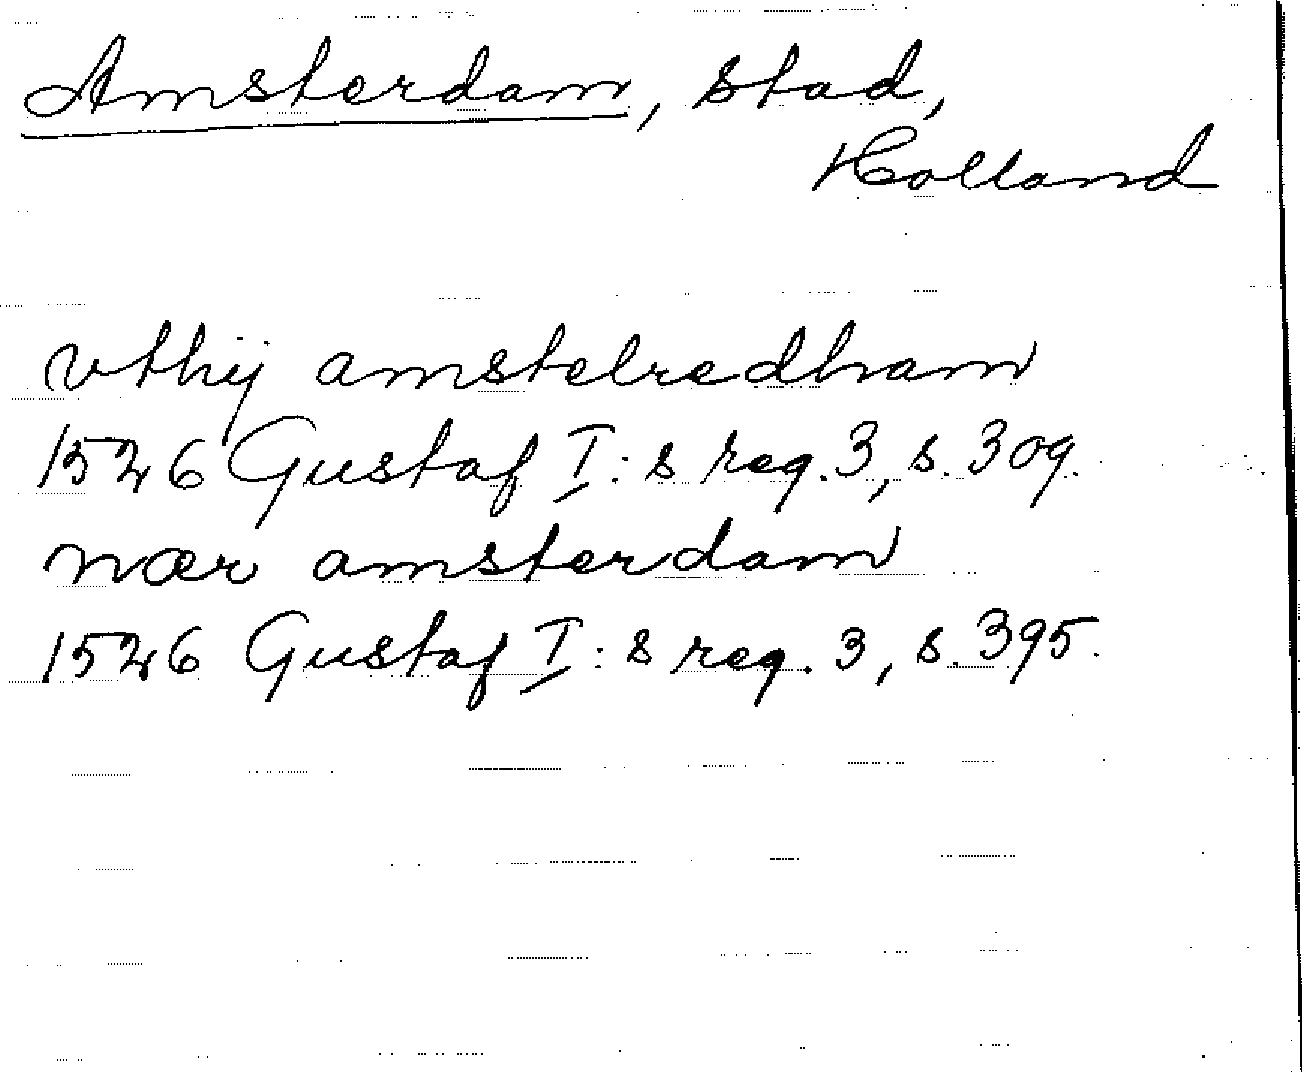 Amsterdam, stad,
Holland
vthij amstelredham
1526 Gustaf I:s reg. 3, s. 309.
nær amsterdam
1526 Gustaf I:s reg. 3, s. 395.